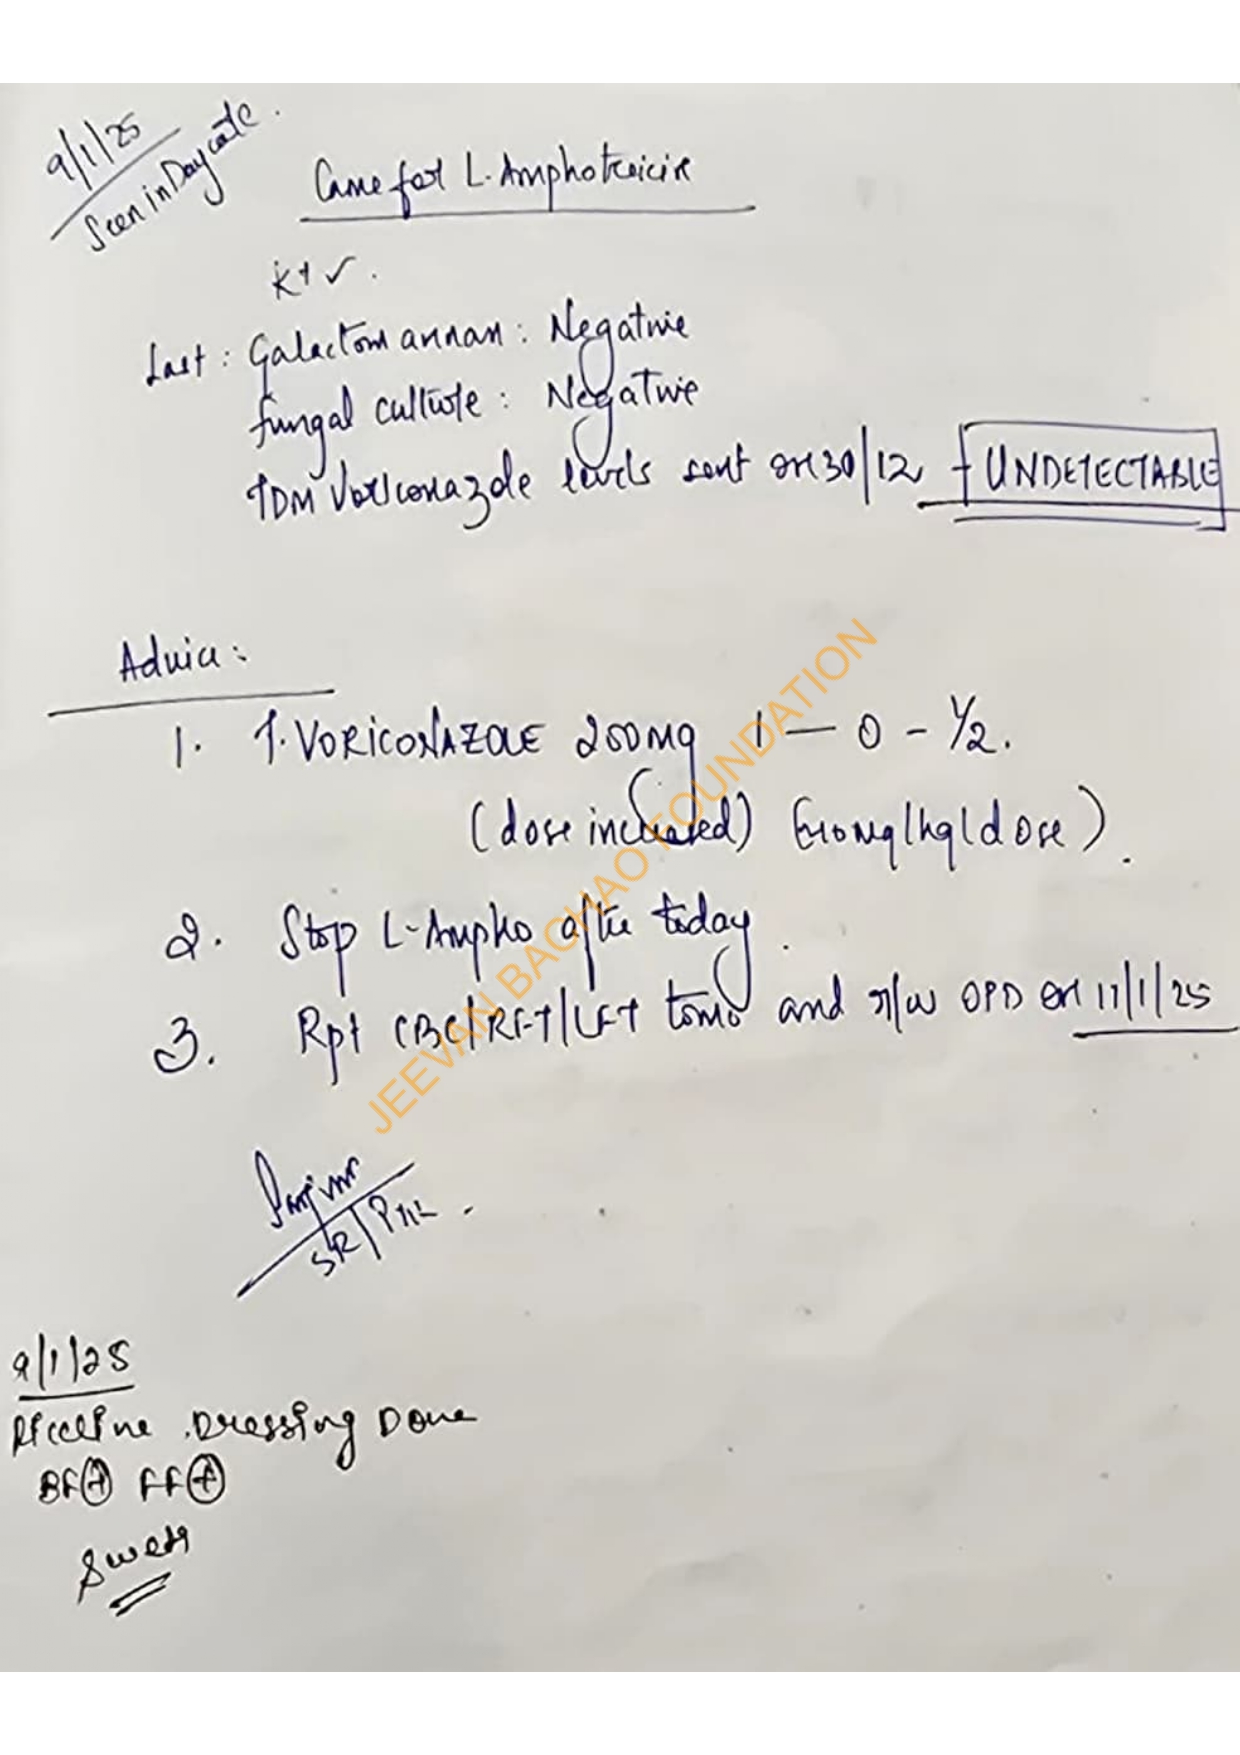 9/1/25
Seen in Daycare.
Came for L. Amphotericin
K+ ✓.
Last : Galactomannan : Negative
fungal culture : Negative
TDM Voriconazole levels sent on 30/12 - UNDETECTABLE
Advice :
1. T. VORICONAZOLE 200mg 1 — 0 - 1/2.
(dose increased) (10mg/kg/dose).
2. Stop L-Ampho after today.
3. Rpt CBC/RFT/LFT tomo and r/w OPD on 11/1/25
SR/
9/1/25
Piccline Dressing Done
BF⊕ FF⊕
JEEVAN BACHAO FOUNDATION